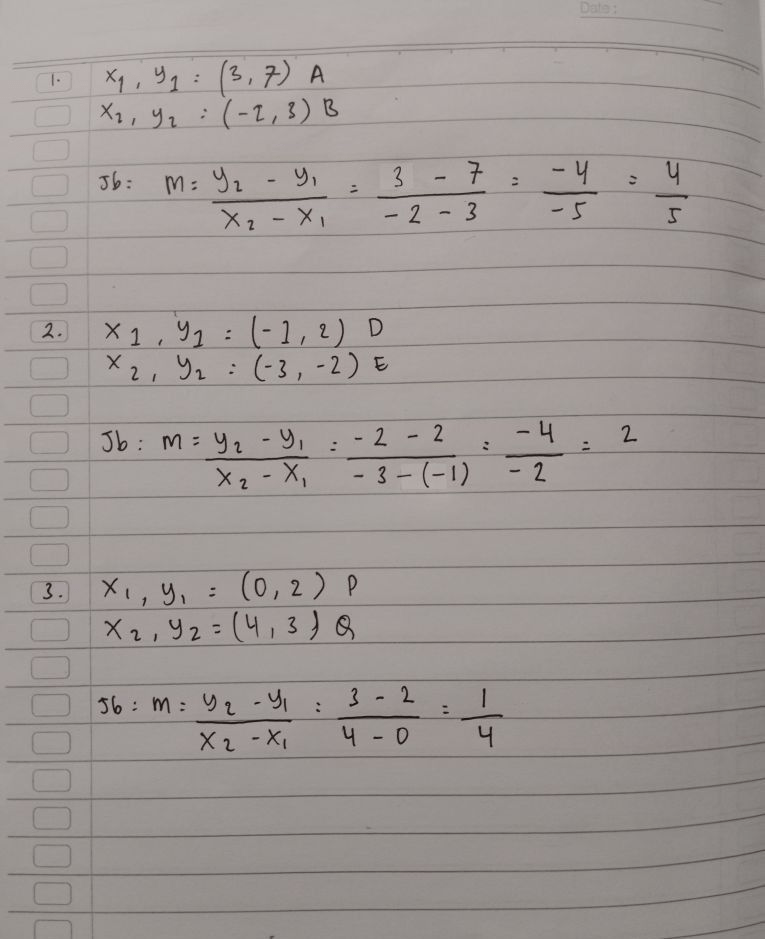 Date :
1. x₁, y₁ : (3, 7) A
x₂, y₂ : (-2, 3) B
Jb: m = y₂ - y₁ / x₂ - x₁ = 3 - 7 / -2 - 3 = -4 / -5 = 4 / 5
2. x₁, y₁ = (-1, 2) D
x₂, y₂ : (-3, -2) E
Jb : m = y₂ - y₁ / x₂ - x₁ = -2 - 2 / -3 - (-1) = -4 / -2 = 2
3. x₁, y₁ = (0, 2) P
x₂, y₂ = (4, 3) Q
Jb : m = y₂ - y₁ / x₂ - x₁ = 3 - 2 / 4 - 0 = 1 / 4